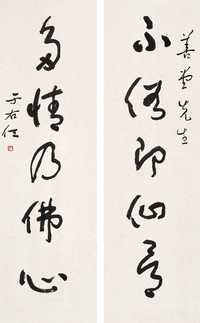 善堂先生
不俗即仙骨
多情乃佛心
于右任